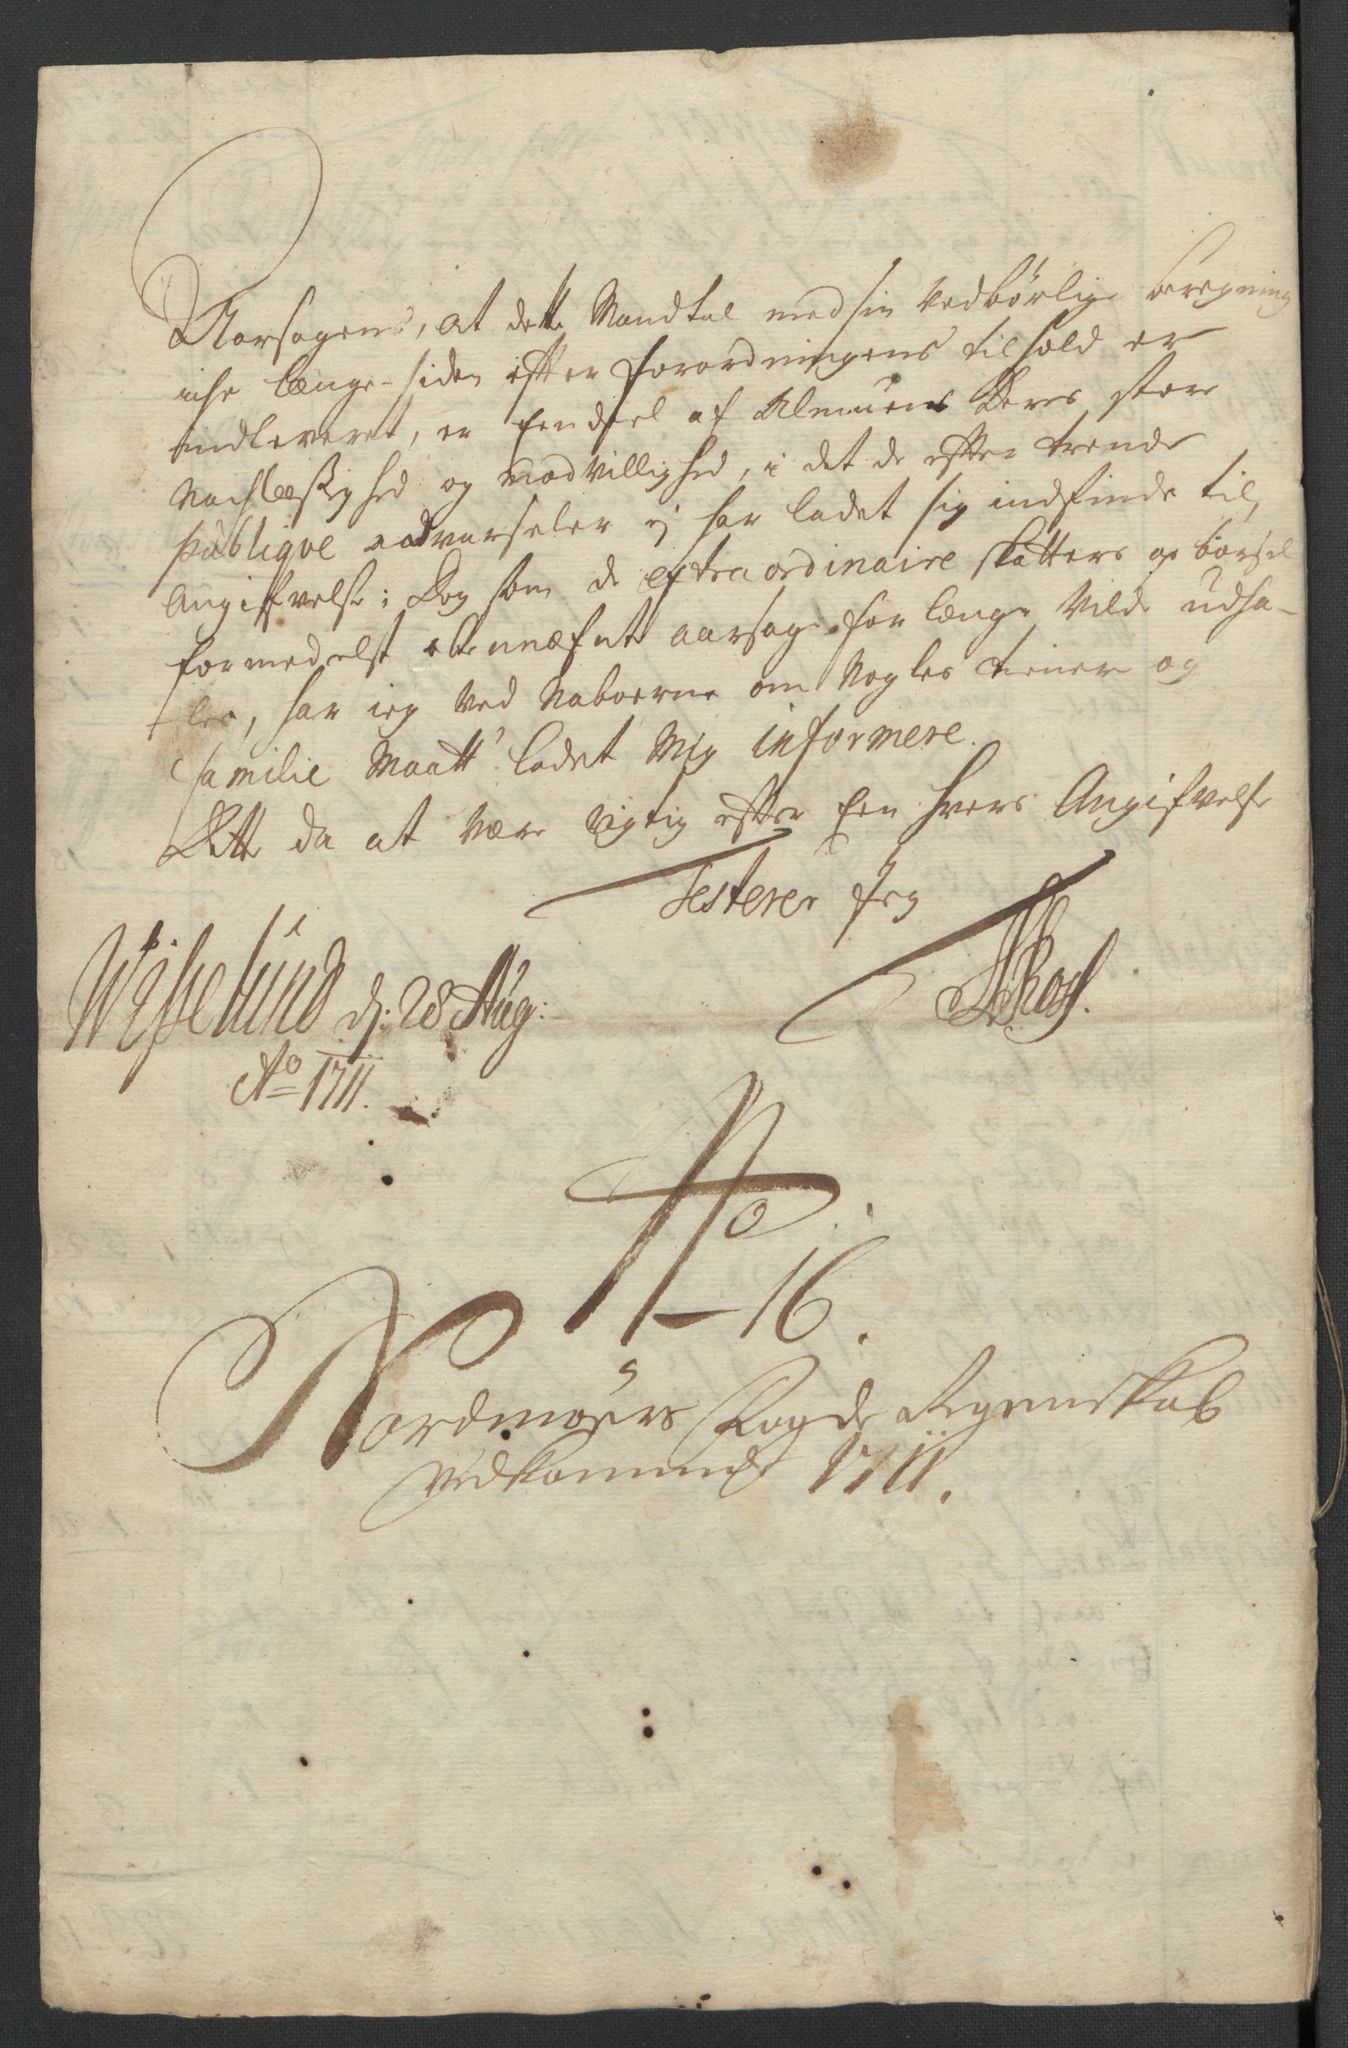 Aarsagens, at dette Mandtal med sin Vedbørlig beregning
iche længe-siden efter forordningens tilhold er
indleveret, er Een deel af Almuens Deres store
Nachlæsighed og modvillighed, i det de efter trende
publique advarseler ej har ladet sig indfinde til
Angiffvelse; Dog som de extraordinaire skatters op børsel
formedelst obennæfnte aarsage for længe Vilde udha-
les, har ieg Ved Naboerne om Nogles tiener og
familie Maatt ladet Mig informere.
Dette da at være rigtig efter Een hvers Angifvelse
Testerer Jeg
Wisselund d. 28 Aug:
Ao 1711.
No 16.
Nordmøers Fogde Regenskab
Vedkommende 1711.